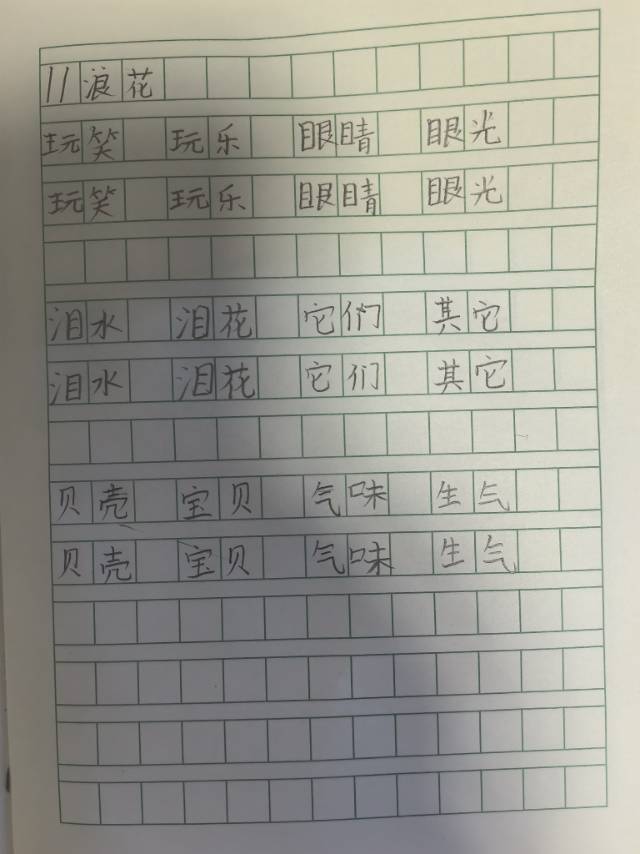 11浪花
玩笑 玩乐 眼睛 眼光
玩笑 玩乐 眼睛 眼光
泪水 泪花 它们 其它
泪水 泪花 它们 其它
贝壳 宝贝 气味 生气
贝壳 宝贝 气味 生气